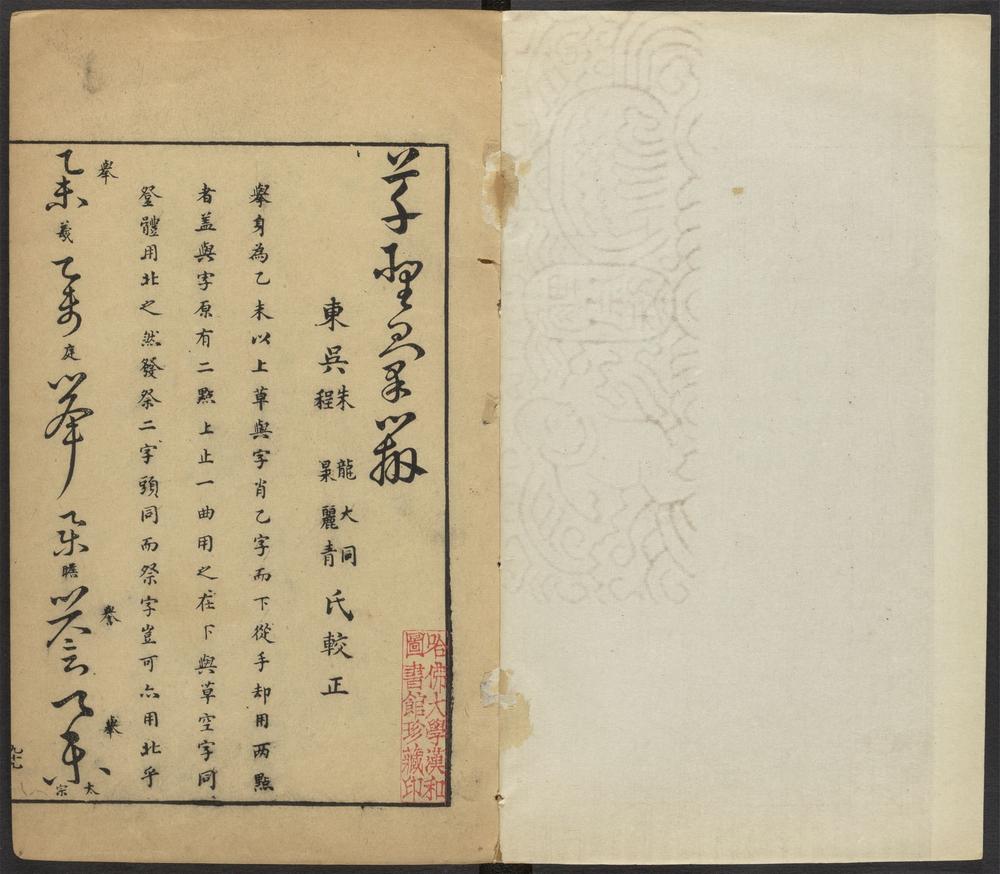 草聖彚辯
東吳朱龍大同程杲麗青氏較正
舉身為乙未以上草與字肖乙字而下從手却用两點
者盖與字原有二點上止一曲用之在下與草空字同
登體用北之然發祭二字頭同而祭字豈可亦用北乎
舉
羲
庭
瞻
譽
舉
太宗
哈佛大學漢和
圖書館珍藏印